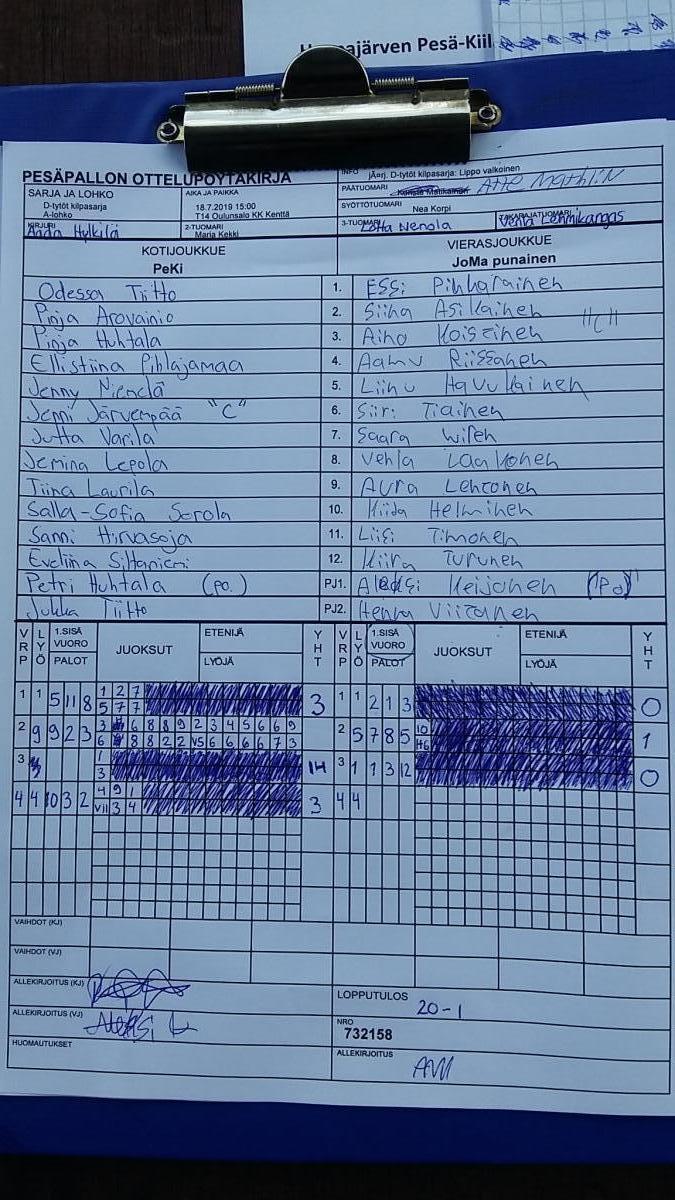 Pesä-Kiil
PESÄPALLON OTTELUPÖYTÄKIRJA
INFO jÄrj. D-tytöt kilpasarja: Lippo valkoinen
SARJA JA LOHKO
D-tytöt kilpasarja
A-lohko
AIKA JA PAIKKA
18.7.2019 15:00
T14 Oulunsalo KK Kenttä
PÄÄTUOMARI Atte
SYÖTTÖTUOMARI
Nea Korpi
KIRJURI
Hylkilä
2-TUOMARI
Maria Kekki
3-TUOMARI
Lotta Nenola
TAKARAJATUOMARI
Venla Lehmikangas
KOTIJOUKKUE
PeKi
VIERASJOUKKUE
JoMa punainen
Odessa Tiitto 1. Essi Pihkarainen
Pinja Arovainio 2. Siina Asikainen "C"
Pinja Huhtala 3. Aino Koistinen
Ellistiina Pihlajamaa 4. Aamu Riissanen
Jenny Niemelä 5. Liinu Havukainen
Jenni Järvenpää "C" 6. Siiri Tiainen
Jutta Varila 7. Saara Wiren
Jemina Lepola 8. Venla Laakonen
Tiina Laurila 9. Aura Lehtonen
Salla-Sofia Sorola 10. Hiida Helminen
Sanni Hirvasoja 11. Liisi Timonen
Eveliina Siltaniemi 12. Kiira Turunen
Petri Huhtala (po.) PJ1. Aleksi Keijonen (Po)
Jukka Tiitto PJ2. Henna Viitanen
VRP LYÖ 1.SISÄ VUORO PALOT JUOKSUT ETENIJÄ LYÖJÄ YHT VRP LYÖ 1.SISÄ VUORO PALOT JUOKSUT ETENIJÄ LYÖJÄ YHT
1 1 5 11 8 1 2 7 3 1 1 2 1 3 0
5 7 7
2 9 9 2 3 6 8 8 9 2 3 4 5 6 6 9 2 5 7 8 5 10 1
6 8 8 2 2 VS 6 6 6 6 7 3 H6
3 1 14 3 1 1 3 12 0
3
4 4 10 3 2 4 9 1 3 4 4
VII 3 4
VAIHDOT (KJ)
VAIHDOT (VJ)
ALLEKIRJOITUS (KJ)
ALLEKIRJOITUS (VJ) Aleksi K
HUOMAUTUKSET
LOPPUTULOS
20-1
NRO
732158
ALLEKIRJOITUS
AM